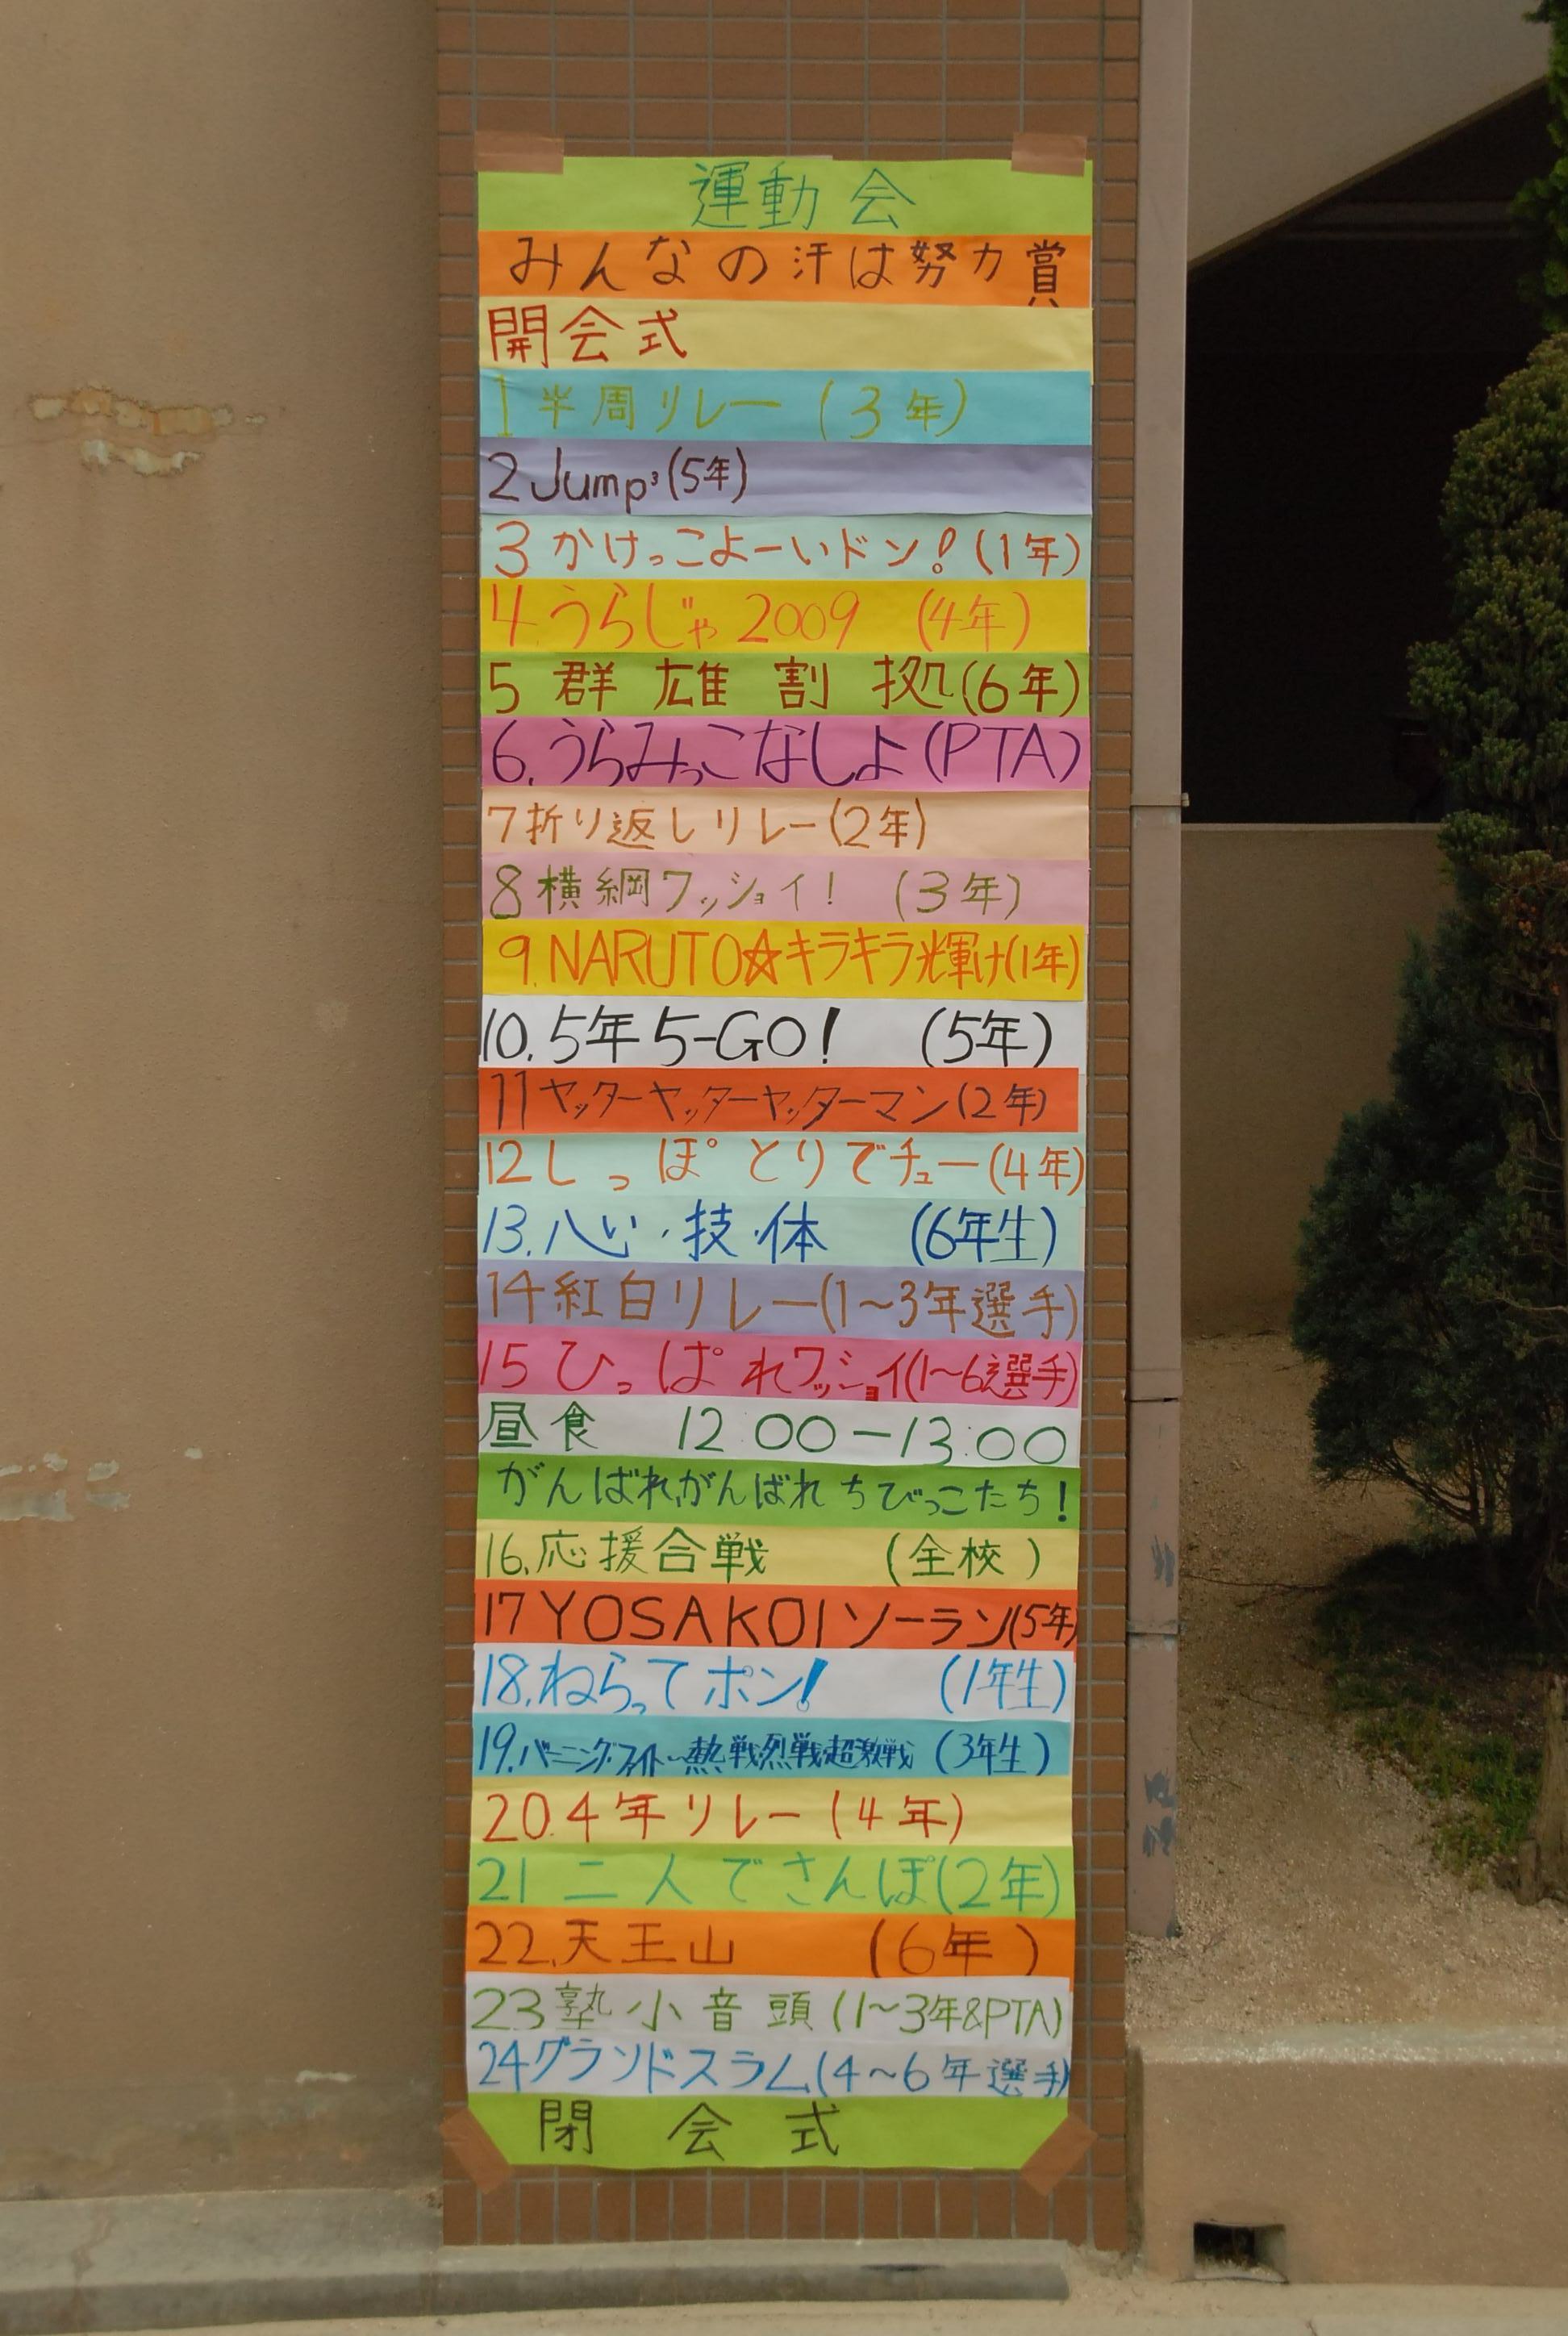 運動会
みんなの汗は努力賞
開会式
1 半周リレー (3年)
2 Jump³ (5年)
3 かけっこよーいドン! (1年)
4.うらじゃ2009 (4年)
5 群雄割拠(6年)
6.うらみっこなしよ(PTA)
7折り返しリレー(2年)
8横綱ワッショイ! (3年)
9.NARUTO☆キラキラ光輝け(1年)
10.5年5-GO! (5年)
11ヤッターヤッターヤッターマン(2年)
12しっぽとりでチュー(4年)
13.心・技・体 (6年生)
14紅白リレー(1~3年選手)
15ひっぱれワッショイ(1~6選手)
昼食 12:00-13:00
がんばれがんばれちびっこたち!
16.応援合戦 (全校)
17 YOSAKOIソーラン(5年)
18.ねらってポン! (1年生)
19.バーニング・ファイト~熱戦・烈戦・超激戦 (3年生)
20.4年リレー(4年)
21 二人でさんぽ(2年)
22.天王山 (6年)
23塾小音頭(1~3年&PTA)
24グランドスラム(4~6年選手)
閉会式